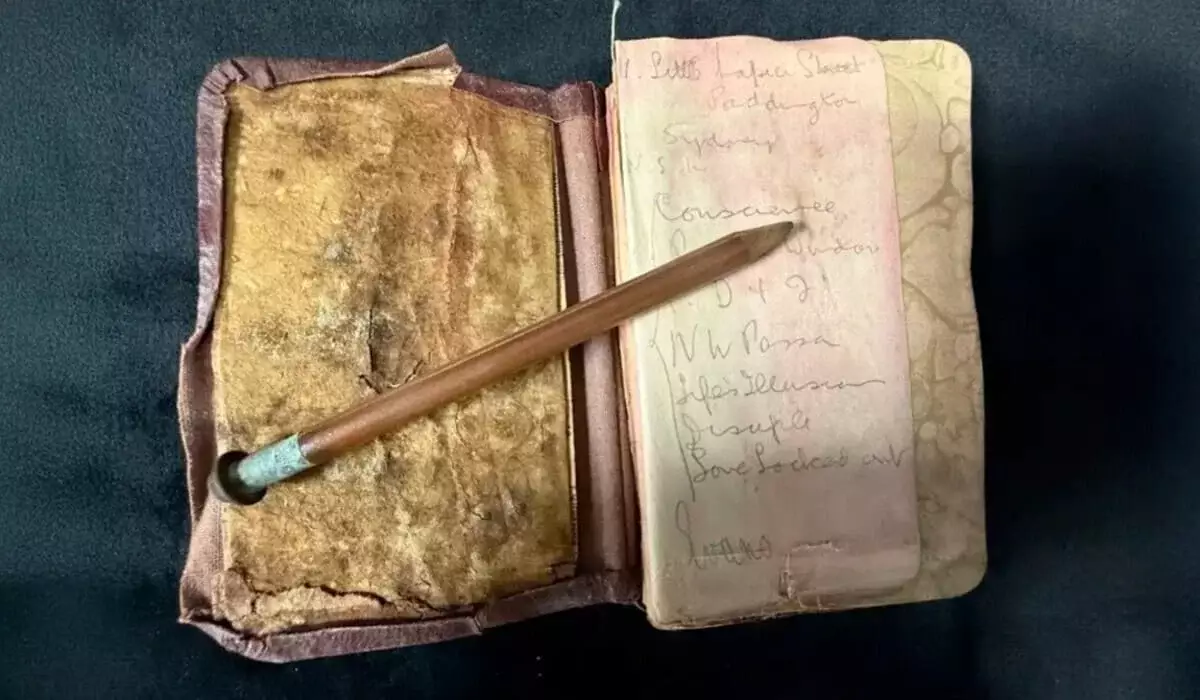 Street
Paddington
Sydney
N. S. W
Conscience
Window
D & J
N W Passa
Life's Illusion
Disciple
Love Locked out
Evans